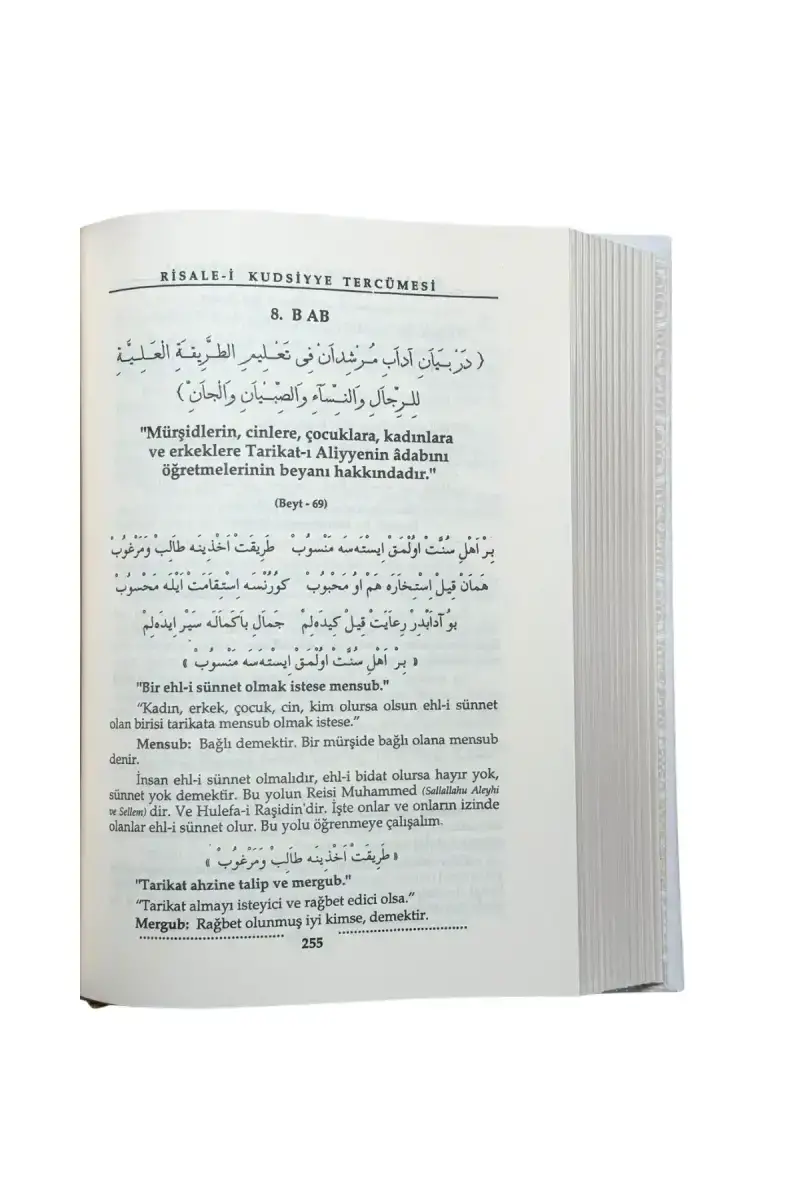 RİSALE-İ KUDSİYYE TERCÜMESİ
8. BAB
( دَرْ بَيَانِ آدَابِ مُرْشِدَانْ فِى تَعْلِيمِ الطَّرِيقَةِ الْعَلِيَّةِ
لِلرِّجَالِ وَالنِّسَآءِ وَالصِّبْيَانِ وَالْجَانْ )
"Mürşidlerin, cinlere, çocuklara, kadınlara
ve erkeklere Tarikat-ı Aliyyenin âdabını
öğretmelerinin beyanı hakkındadır."
(Beyt - 69)
بِرْ اَهْلِ سُنَّتْ اوُلْمَقْ اِيسْتَه سَه مَنْسُوبْ طَرِيقَتْ اَخْذِينَه طَالِبْ وَمَرْغُوبْ
هَمَانْ قِيلْ اِسْتِخَارَه هَمْ اوُ مَحْبُوبْ كوُرُنْسَه اِسْتِقَامَتْ اَيْلَه مَحْسُوبْ
بوُ آدَابْدِرْ رِعَايَتْ قِيلْ كِيدَه لِمْ جَمَالِ بَاكَمَالَه سَيْر اِيدَه لِمْ
« بِرْ اَهْلِ سُنَّتْ اوُلْمَقْ اِيسْتَه سَه مَنْسُوبْ »
"Bir ehl-i sünnet olmak istese mensub."
"Kadın, erkek, çocuk, cin, kim olursa olsun ehl-i sünnet
olan birisi tarikata mensub olmak istese."
Mensub: Bağlı demektir. Bir mürşide bağlı olana mensub
denir.
İnsan ehl-i sünnet olmalıdır, ehl-i bidat olursa hayır yok,
sünnet yok demektir. Bu yolun Reisi Muhammed (Sallallahu Aleyhi
ve Sellem) dir. Ve Hulefa-i Raşidin'dir. İşte onlar ve onların izinde
olanlar ehl-i sünnet olur. Bu yolu öğrenmeye çalışalım.
« طَرِيقَتْ اَخْذِينَه طَالِبْ وَمَرْغُوبْ »
"Tarikat ahzine talip ve mergub."
"Tarikat almayı isteyici ve rağbet edici olsa."
Mergub: Rağbet olunmuş iyi kimse, demektir.
255